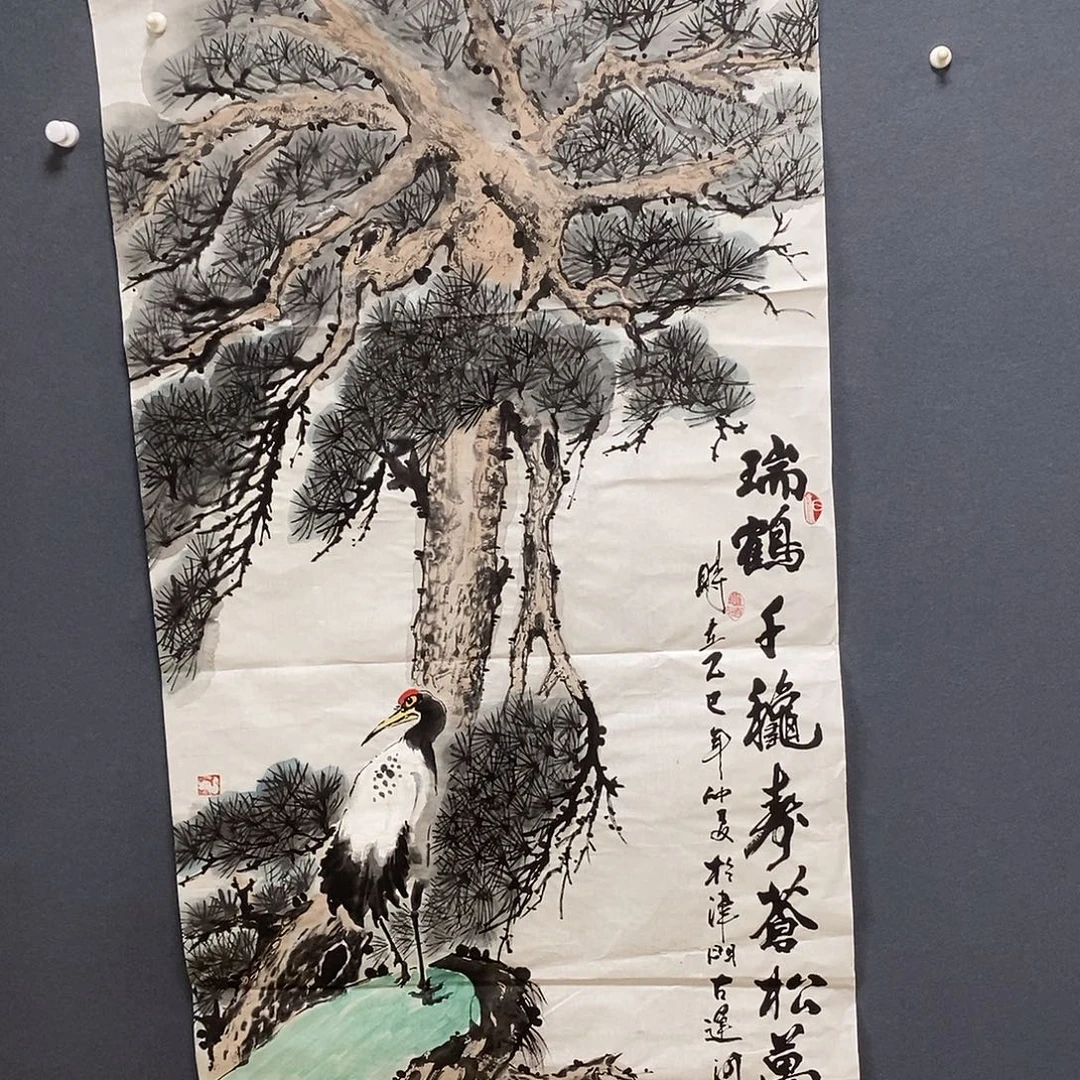 瑞鶴千龝壽蒼松萬
時在乙巳年仲夏於津門古運河